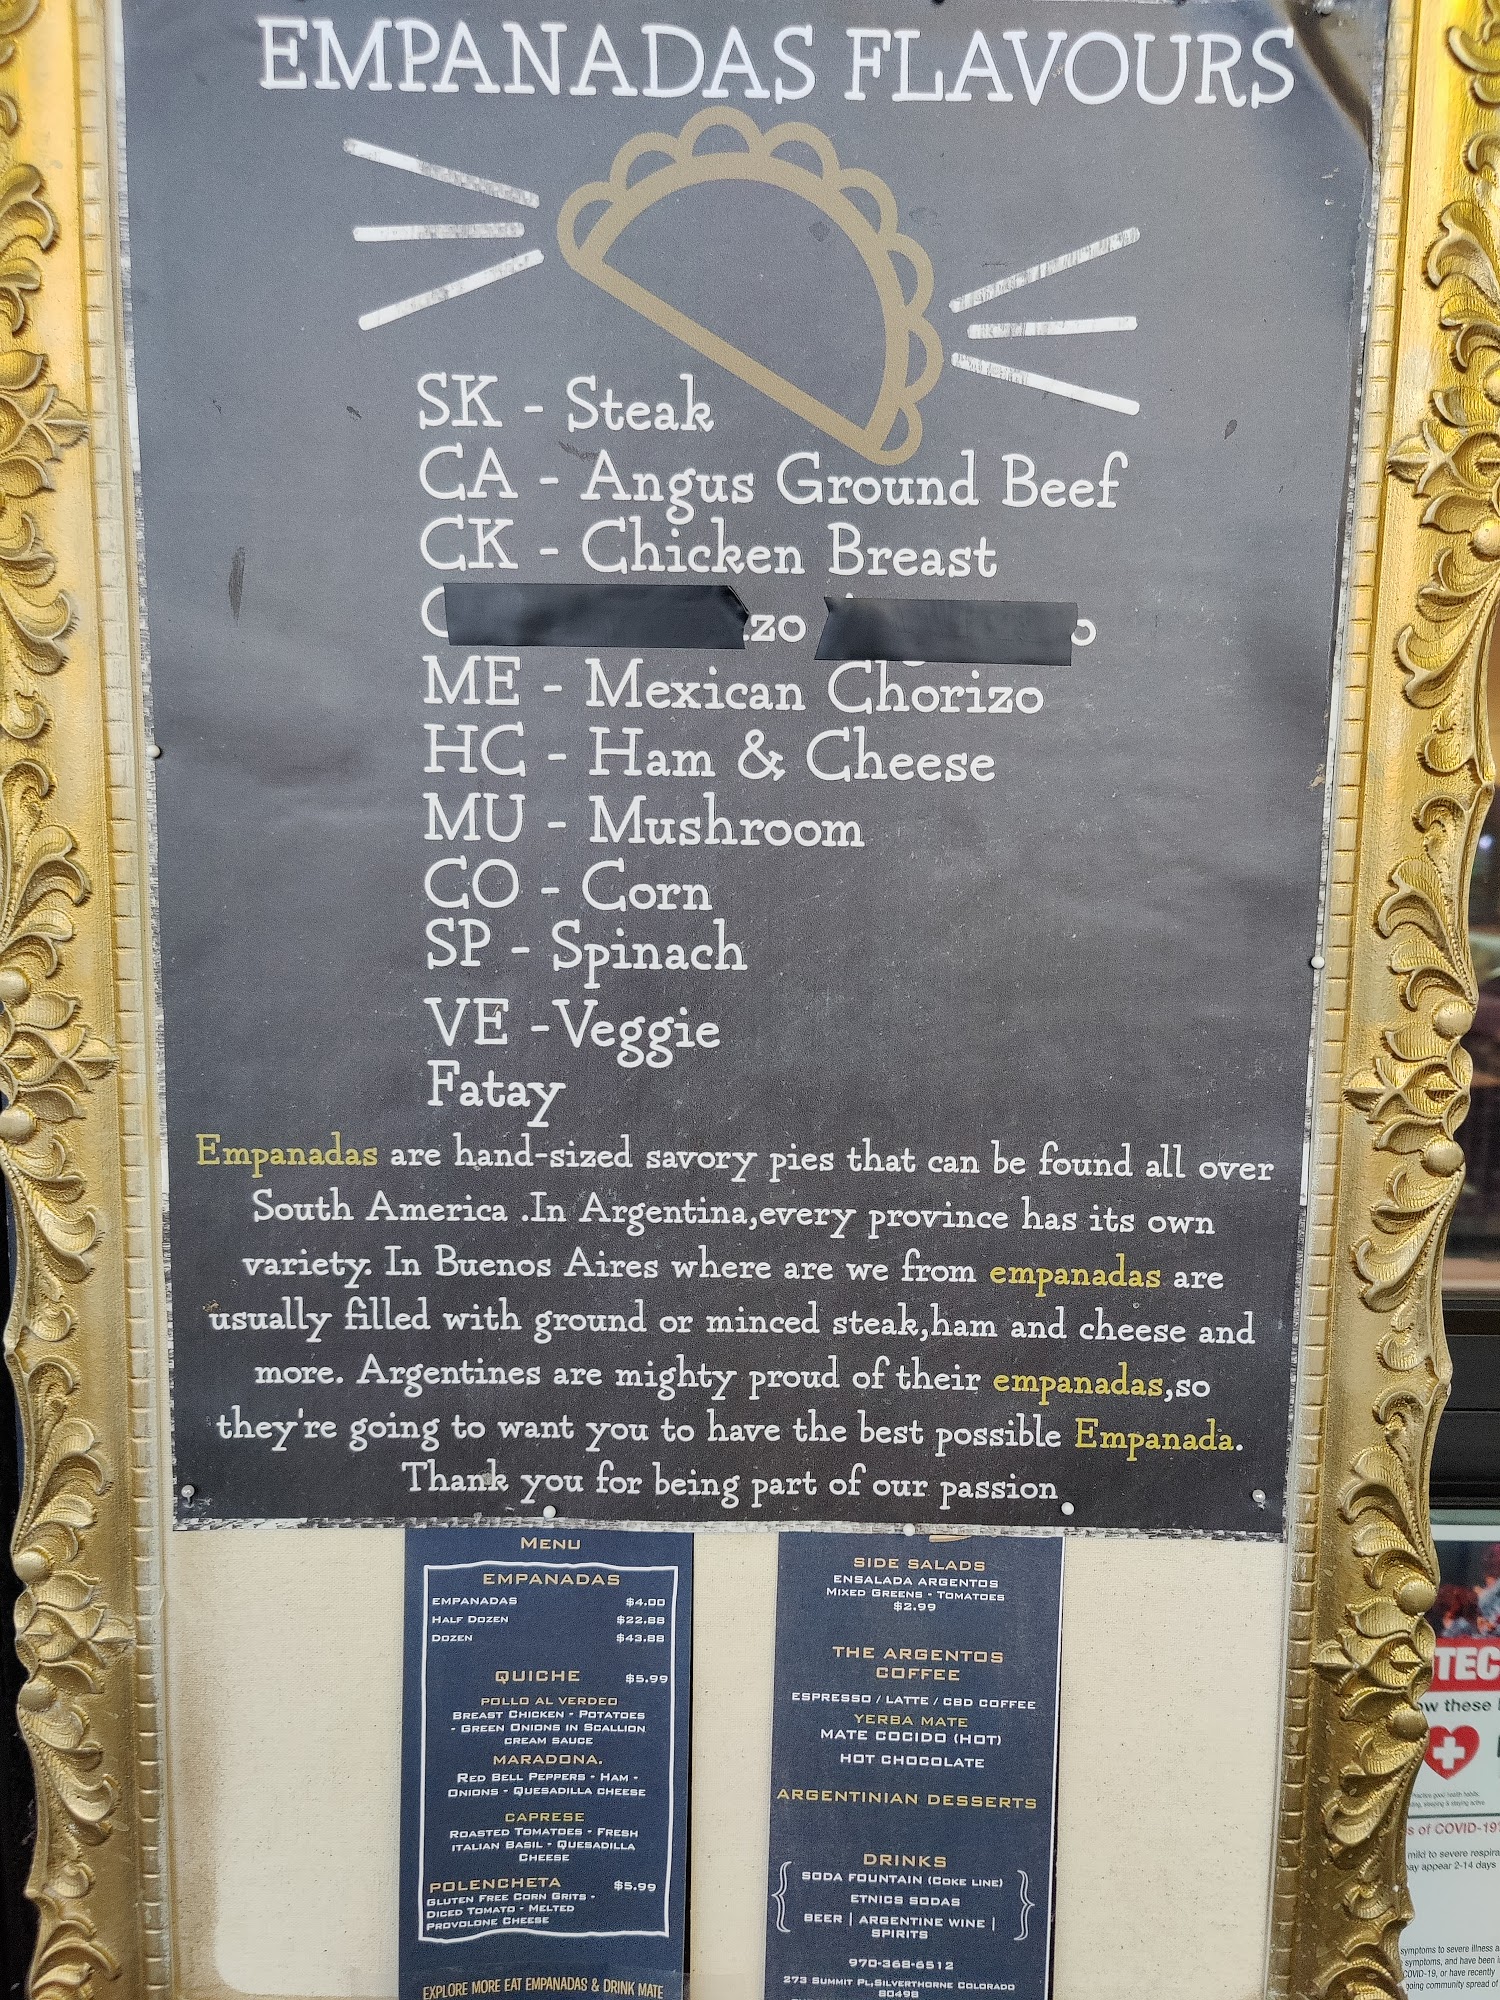 EMPANADAS FLAVOURS
SK - Steak
CA - Angus Ground Beef
CK - Chicken Breast
ME - Mexican Chorizo
HC - Ham & Cheese
MU - Mushroom
CO - Corn
SP - Spinach
VE -Veggie
Fatay
Empanadas are hand-sized savory pies that can be found all over
South America .In Argentina,every province has its own
variety. In Buenos Aires where are we from empanadas are
usually filled with ground or minced steak,ham and cheese and
more. Argentines are mighty proud of their empanadas,so
they're going to want you to have the best possible Empanada.
Thank you for being part of our passion
MENU
EMPANADAS
EMPANADAS $4.00
HALF DOZEN $22.88
DOZEN $43.88
QUICHE $5.99
POLLO AL VERDEO
BREAST CHICKEN - POTATOES
- GREEN ONIONS IN SCALLION
CREAM SAUCE
MARADONA.
RED BELL PEPPERS - HAM -
ONIONS - QUESADILLA CHEESE
CAPRESE
ROASTED TOMATOES - FRESH
ITALIAN BASIL - QUESADILLA
CHEESE
POLENCHETA $5.99
GLUTEN FREE CORN GRITS -
DICED TOMATO - MELTED
PROVOLONE CHEESE
EXPLORE MORE EAT EMPANADAS & DRINK MATE
SIDE SALADS
ENSALADA ARGENTOS
MIXED GREENS - TOMATOES
$2.99
THE ARGENTOS
COFFEE
ESPRESSO / LATTE / CBD COFFEE
YERBA MATE
MATE COCIDO (HOT)
HOT CHOCOLATE
ARGENTINIAN DESSERTS
DRINKS
SODA FOUNTAIN (COKE LINE)
ETNICS SODAS
BEER | ARGENTINE WINE |
SPIRITS
970-368-6512
273 SUMMIT PL,SILVERTHORNE COLORADO
80498
these
of COVID-19?
mild to severe
may appear 2-14 days
symptoms to severe illness
symptoms, and have been
COVID-19, or have recently
going community spread of